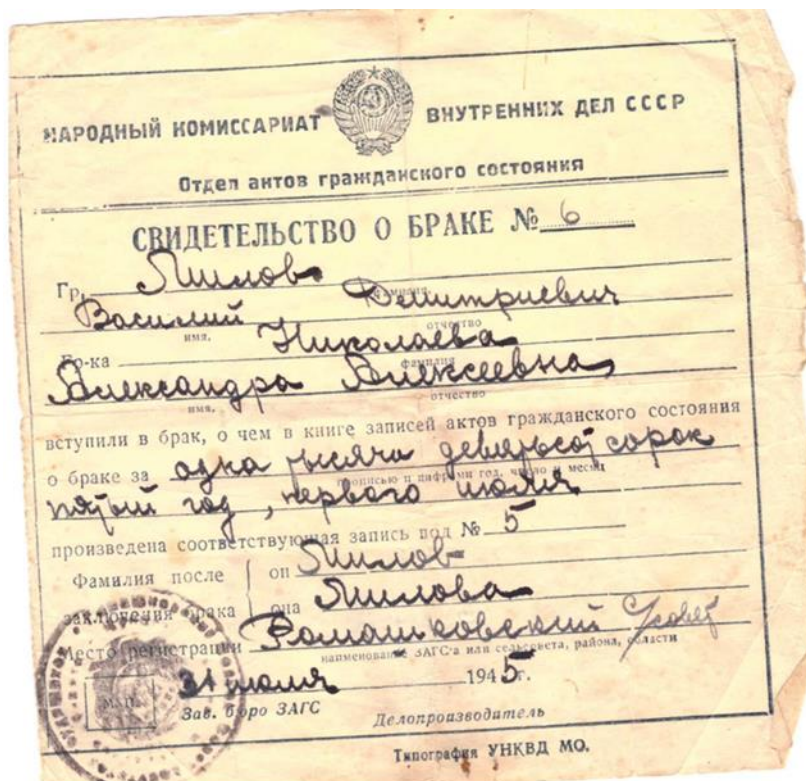 НАРОДНЫЙ КОМИССАРИАТ ВНУТРЕННИХ ДЕЛ СССР
Отдел актов гражданского состояния
СВИДЕТЕЛЬСТВО О БРАКЕ № 6
Гр.
фамилия
Василий Дмитриевич
имя, отчество
Гр-ка Николаева
фамилия
Александра Алексеевна
имя, отчество
вступили в брак, о чем в книге записей актов гражданского состояния
о браке за одна тысяча девятьсот сорок
прописью и цифрами год, число и месяц
пятый год, первого июля
произведена соответствующая запись под № 5
Фамилия после он
заключения брака она
Место регистрации Ромашковский С/совет
наименование ЗАГС'а или сельсовета, района, области
31 июля 1945г.
М.П. Зав. бюро ЗАГС Делопроизводитель
Типография УНКВД МО.